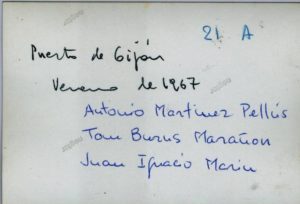 21 A
Puerto de Gijón
Verano de 1967
Antonio Martinez Pellús
Tom Burns Marañon
Juan Ignacio Marin